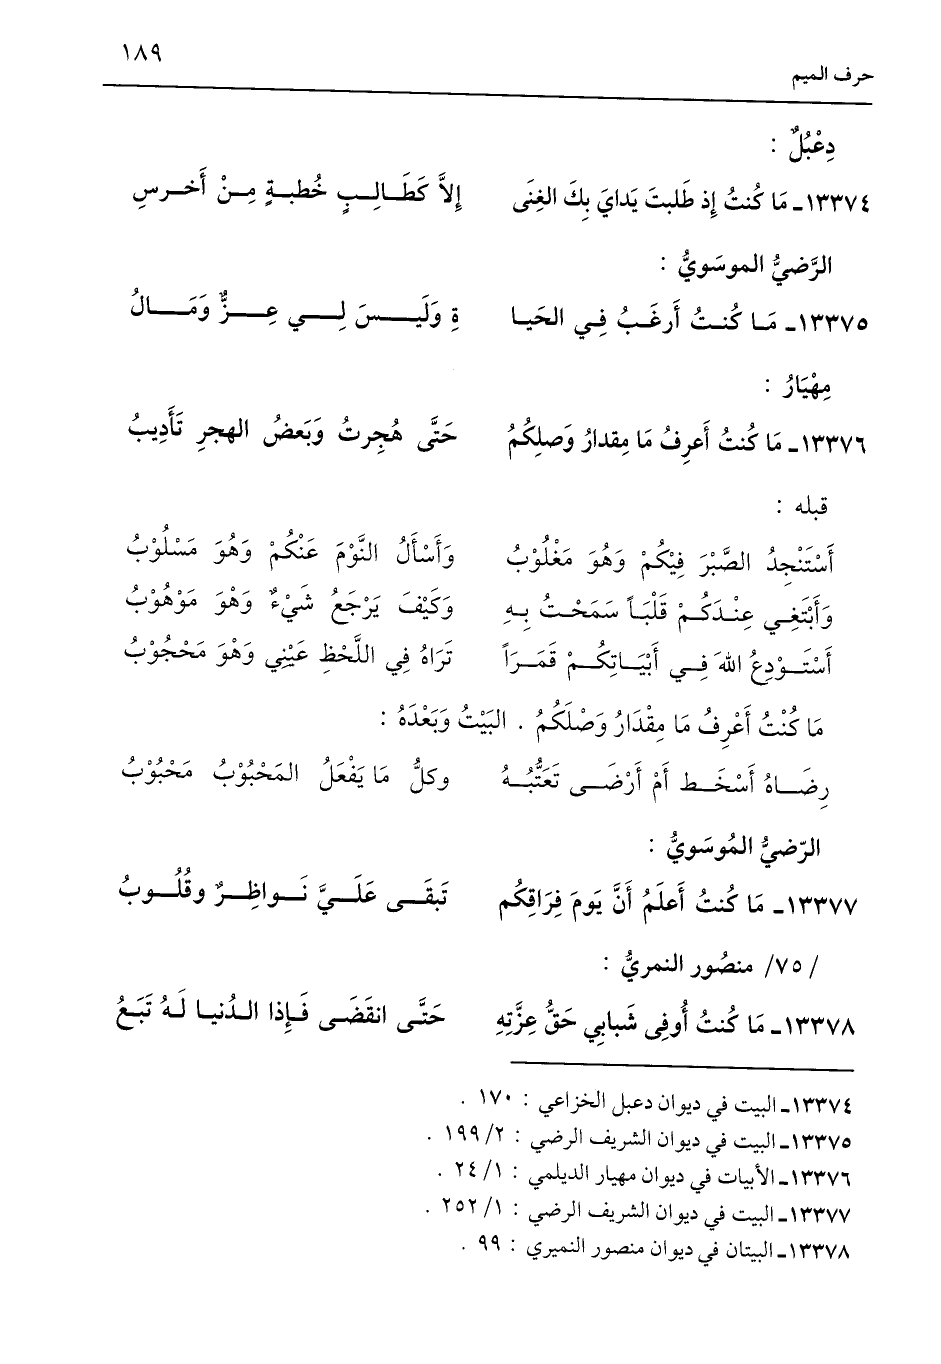 ١٨٩
حرف الميم
دِعْبُلٌ :
١٣٣٧٤ـ مَا كُنتُ إِذ طَلبتَ يَدايَ بِكَ الغِنَى إِلاَّ كَطَالِبٍ خُطبةٍ مِنْ أَخرسِ
الرَّضيُّ الموسَويُّ :
١٣٣٧٥ـ مَا كُنتُ أَرغَبُ فِي الحَيا ةِ وَلَيسَ لِي عِزٌّ وَمَالُ
مِهْيَارُ :
١٣٣٧٦ـ مَا كُنتُ أَعرِفُ مَا مِقدارُ وَصلِكُمُ حَتَّى هُجِرتُ وَبَعضُ الهجرِ تَأدِيبُ
قبله :
أَسْتَنْجِدُ الصَّبْرَ فِيْكُمْ وَهُوَ مَغْلُوْبُ وَأَسْأَلُ النَّوْمَ عَنْكُمْ وَهُوَ مَسْلُوْبُ
وَأَبْتَغِي عِنْدَكُمْ قَلْبَاً سَمَحْتُ بِهِ وَكَيْفَ يَرْجَعُ شَيْءٌ وَهْوَ مَوْهُوْبُ
أَسْتَوْدِعُ اللهَ فِي أَبْيَاتِكُمْ قَمَرَاً تَرَاهُ فِي اللَّحْظِ عَيْنِي وَهْوَ مَحْجُوْبُ
مَا كُنْتُ أَعْرِفُ مَا مِقْدَارُ وَصْلَكُمُ . البَيْتُ وَبَعْدَهُ :
رِضَاهُ أَسْخَط أَمْ أَرْضَى تَعَتُّبُهُ وكلُّ مَا يَفْعَلُ المَحْبُوْبُ مَحْبُوْبُ
الرّضيُّ المُوسَويُّ :
١٣٣٧٧ـ مَا كُنتُ أَعلَمُ أَنَّ يَومَ فِرَاقِكُم تَبقَى عَلَيَّ نَواظِرٌ وقُلُوبُ
/ ٧٥/ منصُور النمريُّ :
١٣٣٧٨ـ مَا كُنتُ أُوفِى شَبابِي حَقَّ عِزَّتِهِ حَتَّى انقَضَى فَإِذا الدُنيا لَهُ تَبَعُ
١٣٣٧٤ـ البيت في ديوان دعبل الخزاعي : ١٧٠ .
١٣٣٧٥ـ البيت في ديوان الشريف الرضي : ٢/ ١٩٩ .
١٣٣٧٦ـ الأبيات في ديوان مهيار الديلمي : ١/ ٢٤ .
١٣٣٧٧ـ البيت في ديوان الشريف الرضي : ١/ ٢٥٢ .
١٣٣٧٨ـ البيتان في ديوان منصور النميري : ٩٩ .